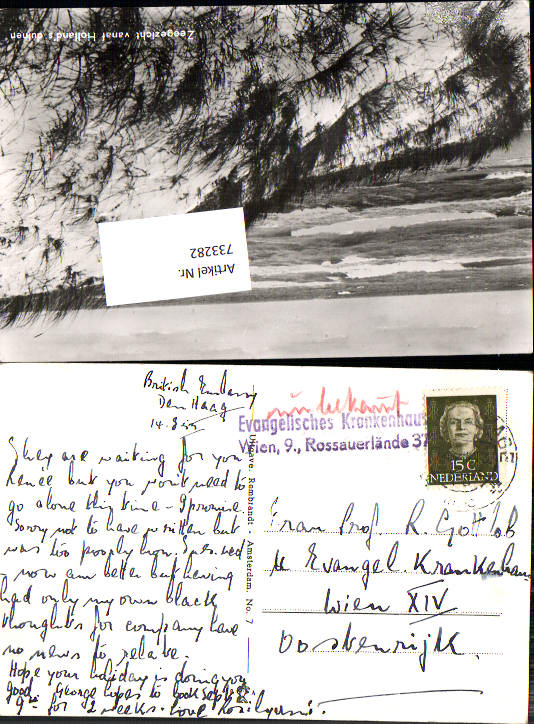 Zeegezicht vanaf Holland's duinen
Artikel Nr.
733282
British Embassy
Den Haag
14. 8
They are waiting for you
Renée but you won't need to
go alone this time - I promise.
Sorry not to have written but
was too poorly
- now am better but having
had only my own black
thoughts for company have
no news to relate.
Hope your holiday is doing you
good. George hopes to
9th for 2 weeks. Love
Uitgave. Rembrandt. Amsterdam. No. 7
unbekannt
Evangelisches Krankenhaus
Wien, 9., Rossauerlände 37
15 C
NEDERLAND
Frau Prof. R. Gottlob
Evangel. Krankenhaus
Wien XIV
Oostenrijk.